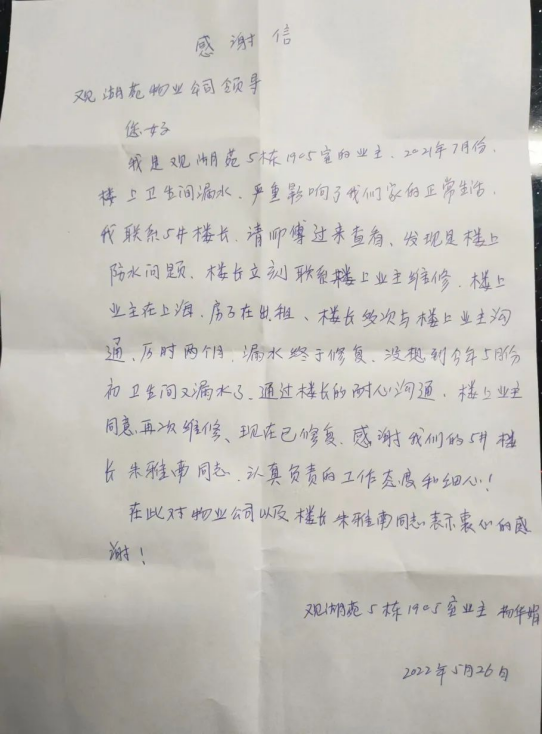 感谢信
观湖苑物业公司领导
您好
我是观湖苑5栋1905室的业主，2021年7月份，
楼上卫生间漏水，严重影响了我们家的正常生活，
我联系5#楼长，请师傅过来查看，发现是楼上
防水问题、楼长立刻联系楼上业主维修，楼上
业主在上海，房子在出租、楼长多次与楼上业主沟
通，历时两个月，漏水终于修复，没想到今年5月份
初卫生间又漏水了，通过楼长的耐心沟通，楼上业主
同意再次维修、现在已修复、感谢我们的5#楼
长朱雅南同志、认真负责的工作态度和细心！
在此对物业公司以及楼长朱雅南同志表示衷心的感
谢！
观湖苑5栋1905室业主 杨华娟
2022年5月26日